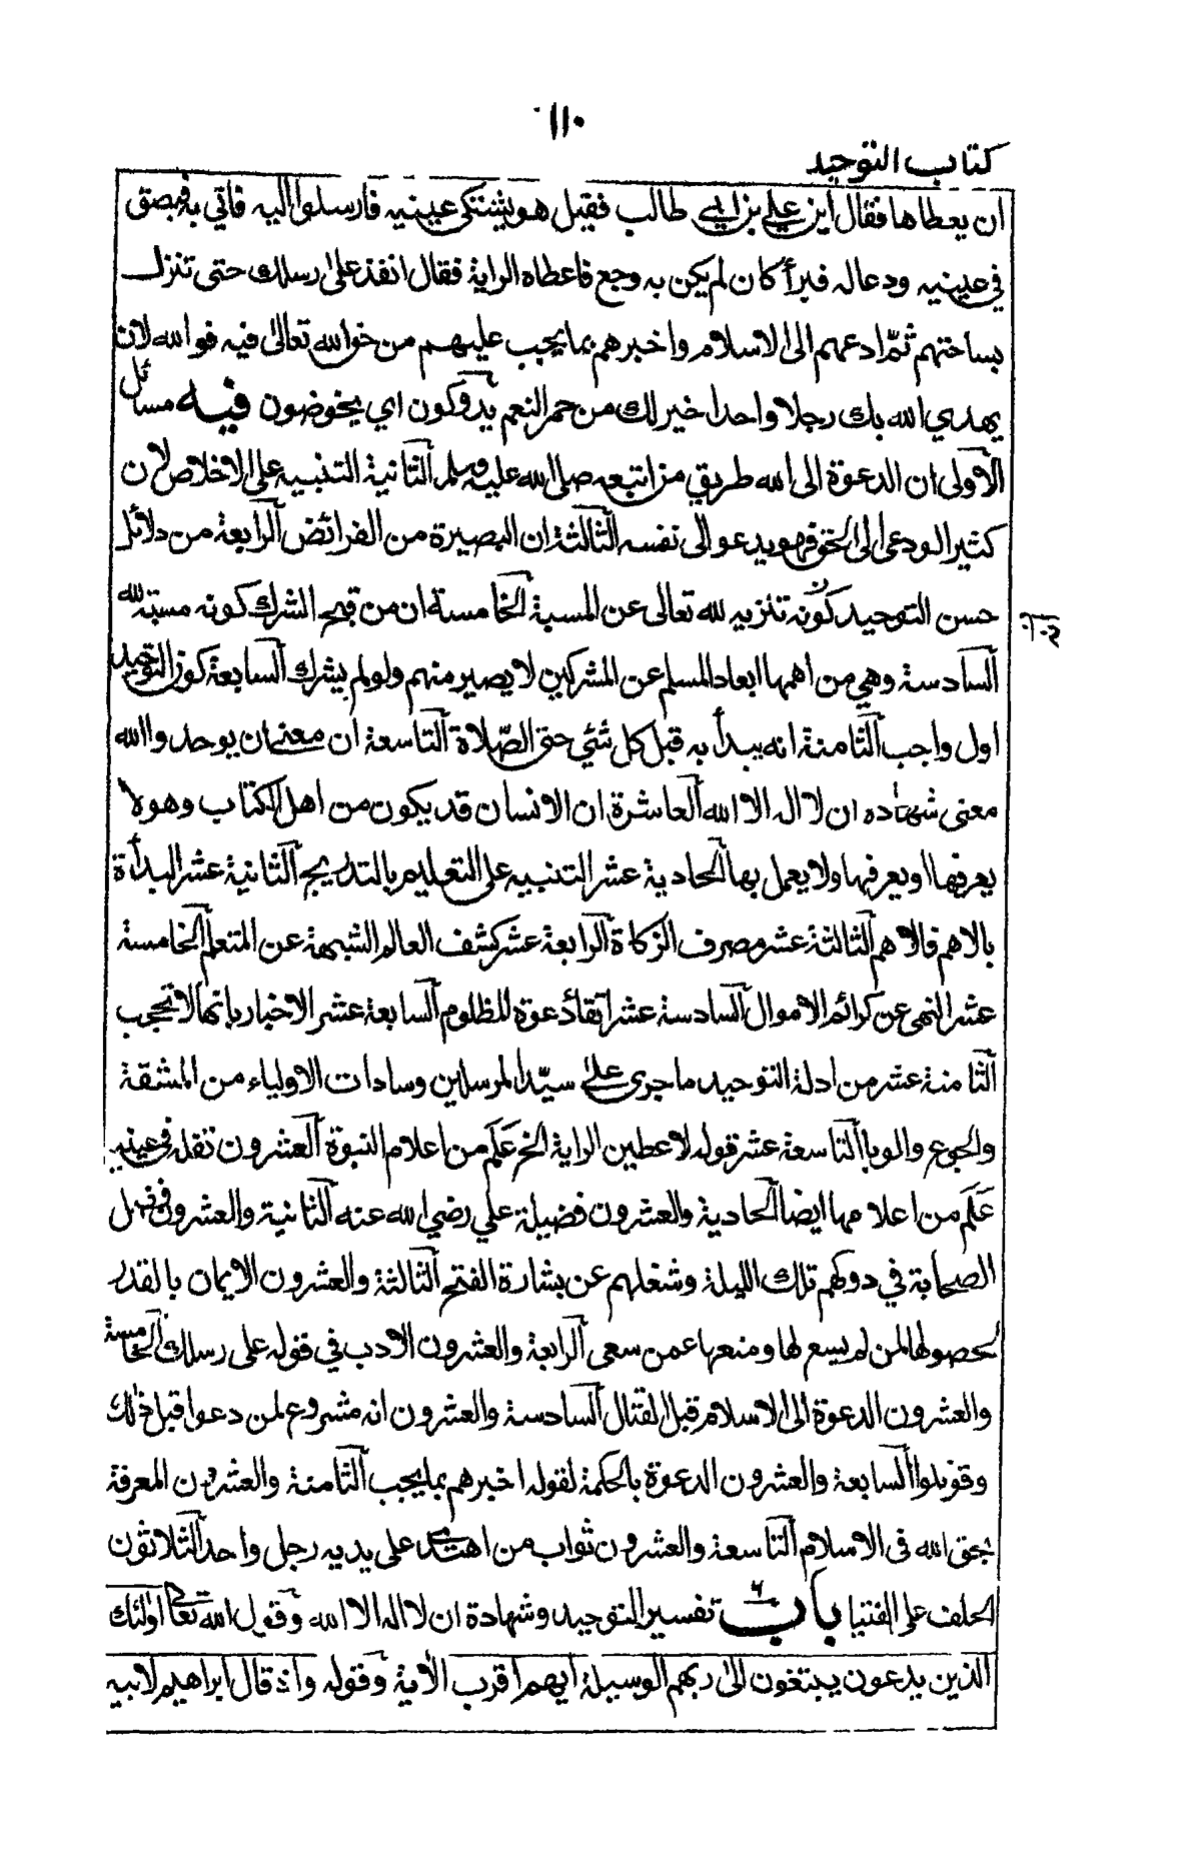 ١١٠
كتاب التوحيد
ان يعطاها فقال اين علي بن ابي طالب فقيل هو يشتكى عينيه فارسلوا اليه فاتي به فبصق
في عينيه ودعاله فبرأ كان لم يكن به وجع فاعطاه الراية فقال انفذ على رسلك حتى تنزل
بساحتهم ثمّ ادعهم الى الاسلام واخبرهم بما يجب عليهم من حق الله تعالى فيه فوالله لان
يهدي الله بك رجلا واحدا خير لك من حمر النعم يدوكون اي يخوضون فيه مسائل
الاولى ان الدعوة الى الله طريق من اتبعه صلى الله عليه وسلم الثانية التنبيه على الاخلاص لان
كثيرا لو دعى الى الحق فهو يدعو الى نفسه الثالثة ان البصيرة من الفرائض الرابعة من دلائل
حسن التوحيد كونه تنزيه لله تعالى عن المسبة الخامسة ان من قبح الشرك كونه مسبة لله
السادسة وهي من اهمها ابعاد المسلم عن المشركين لا يصير منهم ولو لم يشرك السابعة كون التوحيد
اول واجب الثامنة انه يبدأ به قبل كل شئي حتى الصّلاة التاسعة ان معنى ان يوحدوا الله
معنى شهاده ان لا اله الا الله العاشرة ان الانسان قد يكون من اهل الكتاب وهو لا
يعرفها او يعرفها ولا يعمل بها الحادية عشر التنبيه على التعليم بالتدريج الثانية عشر البدأة
بالاهم فالاهم الثالثة عشر مصرف الزكاة الرابعة عشر كشف العالم الشبهة عن المتعلم الخامسة
عشر النهى عن كرائم الاموال السادسة عشر اتقاء دعوة المظلوم السابعة عشر الاخبار بانها لا تحجب
الثامنة عشر من ادلة التوحيد ما جرى على سيّد المرسلين وسادات الاولياء من المشقة
والجوع والوبا التاسعة عشر قوله لاعطين الراية الخ عَلَم من اعلام النبوة العشرون تفله في عينيه
عَلَم من اعلامها ايضا الحادية والعشرون فضيلة علي رضي الله عنه الثانية والعشرون فضل
الصحابة في دوكهم تلك الليلة وشغلهم عن بشارة الفتح الثالثة والعشرون الايمان بالقدر
لحصولها لمن لم يسع لها ومنعها عمن سعى الرابعة والعشرون الادب في قوله على رسلك الخامسة
والعشرون الدعوة الى الاسلام قبل القتال السادسة والعشرون انه مشروع لمن دعوا قبل ذلك
وقوتلوا السابعة والعشرون الدعوة بالحكمة لقوله اخبرهم بما يجب الثامنة والعشرون المعرفة
بحق الله فى الاسلام التاسعة والعشرون ثواب من اهتدى على يديه رجل واحد الثلاثون
الحلف على الفتيا باب تفسير التوحيد وشهادة ان لا اله الا الله وقول الله تعالى اولئك
الذين يدعون يبتغون الى ربهم الوسيلة ايهم اقرب الاية وقوله واذ قال ابراهيم لابيه